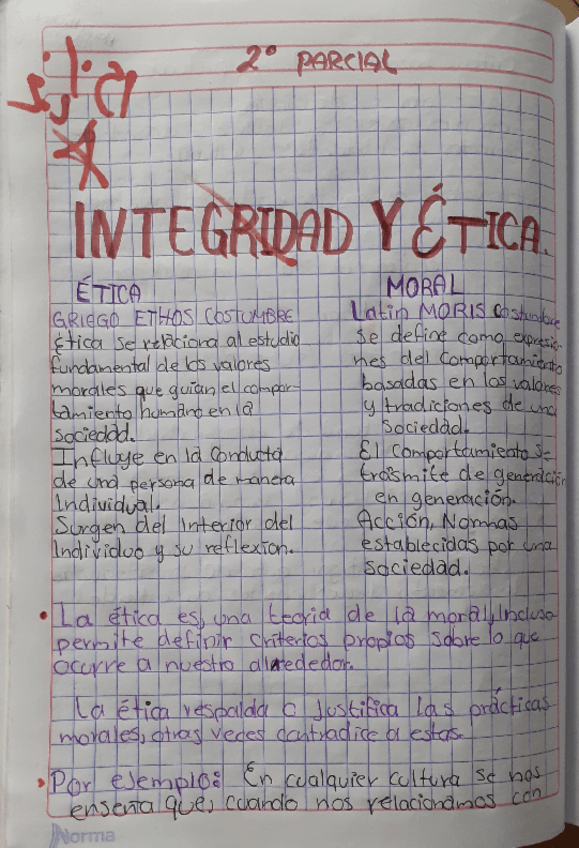 2° PARCIAL
INTEGRIDAD Y ÉTICA.
ÉTICA
GRIEGO ETHOS COSTUMBRE
Ética se relaciona al estudio
fundamental de los valores
morales que guían el compor-
tamiento humano en la
sociedad.
Influye en la conducta
de una persona de manera
Individual.
Surgen del Interior del
Individuo y su reflexion.
MORAL
Latin MORIS costumbre
se define como expresio-
nes del comportamiento
basadas en los valores
y tradiciones de una
Sociedad.
El comportamiento se
trasmite de generación
en generación.
Acción, Normas
establecidas por una
Sociedad.
• La ética es, una teoria de la moral, Incluso
permite definir criterios propios sobre lo que
ocurre a nuestro alrededor.
La ética respalda o Justifica las prácticas
morales, otras veces contradice a estas.
• Por ejemplo: En cualquier cultura se nos
enseña que, cuando nos relacionamos con
Norma